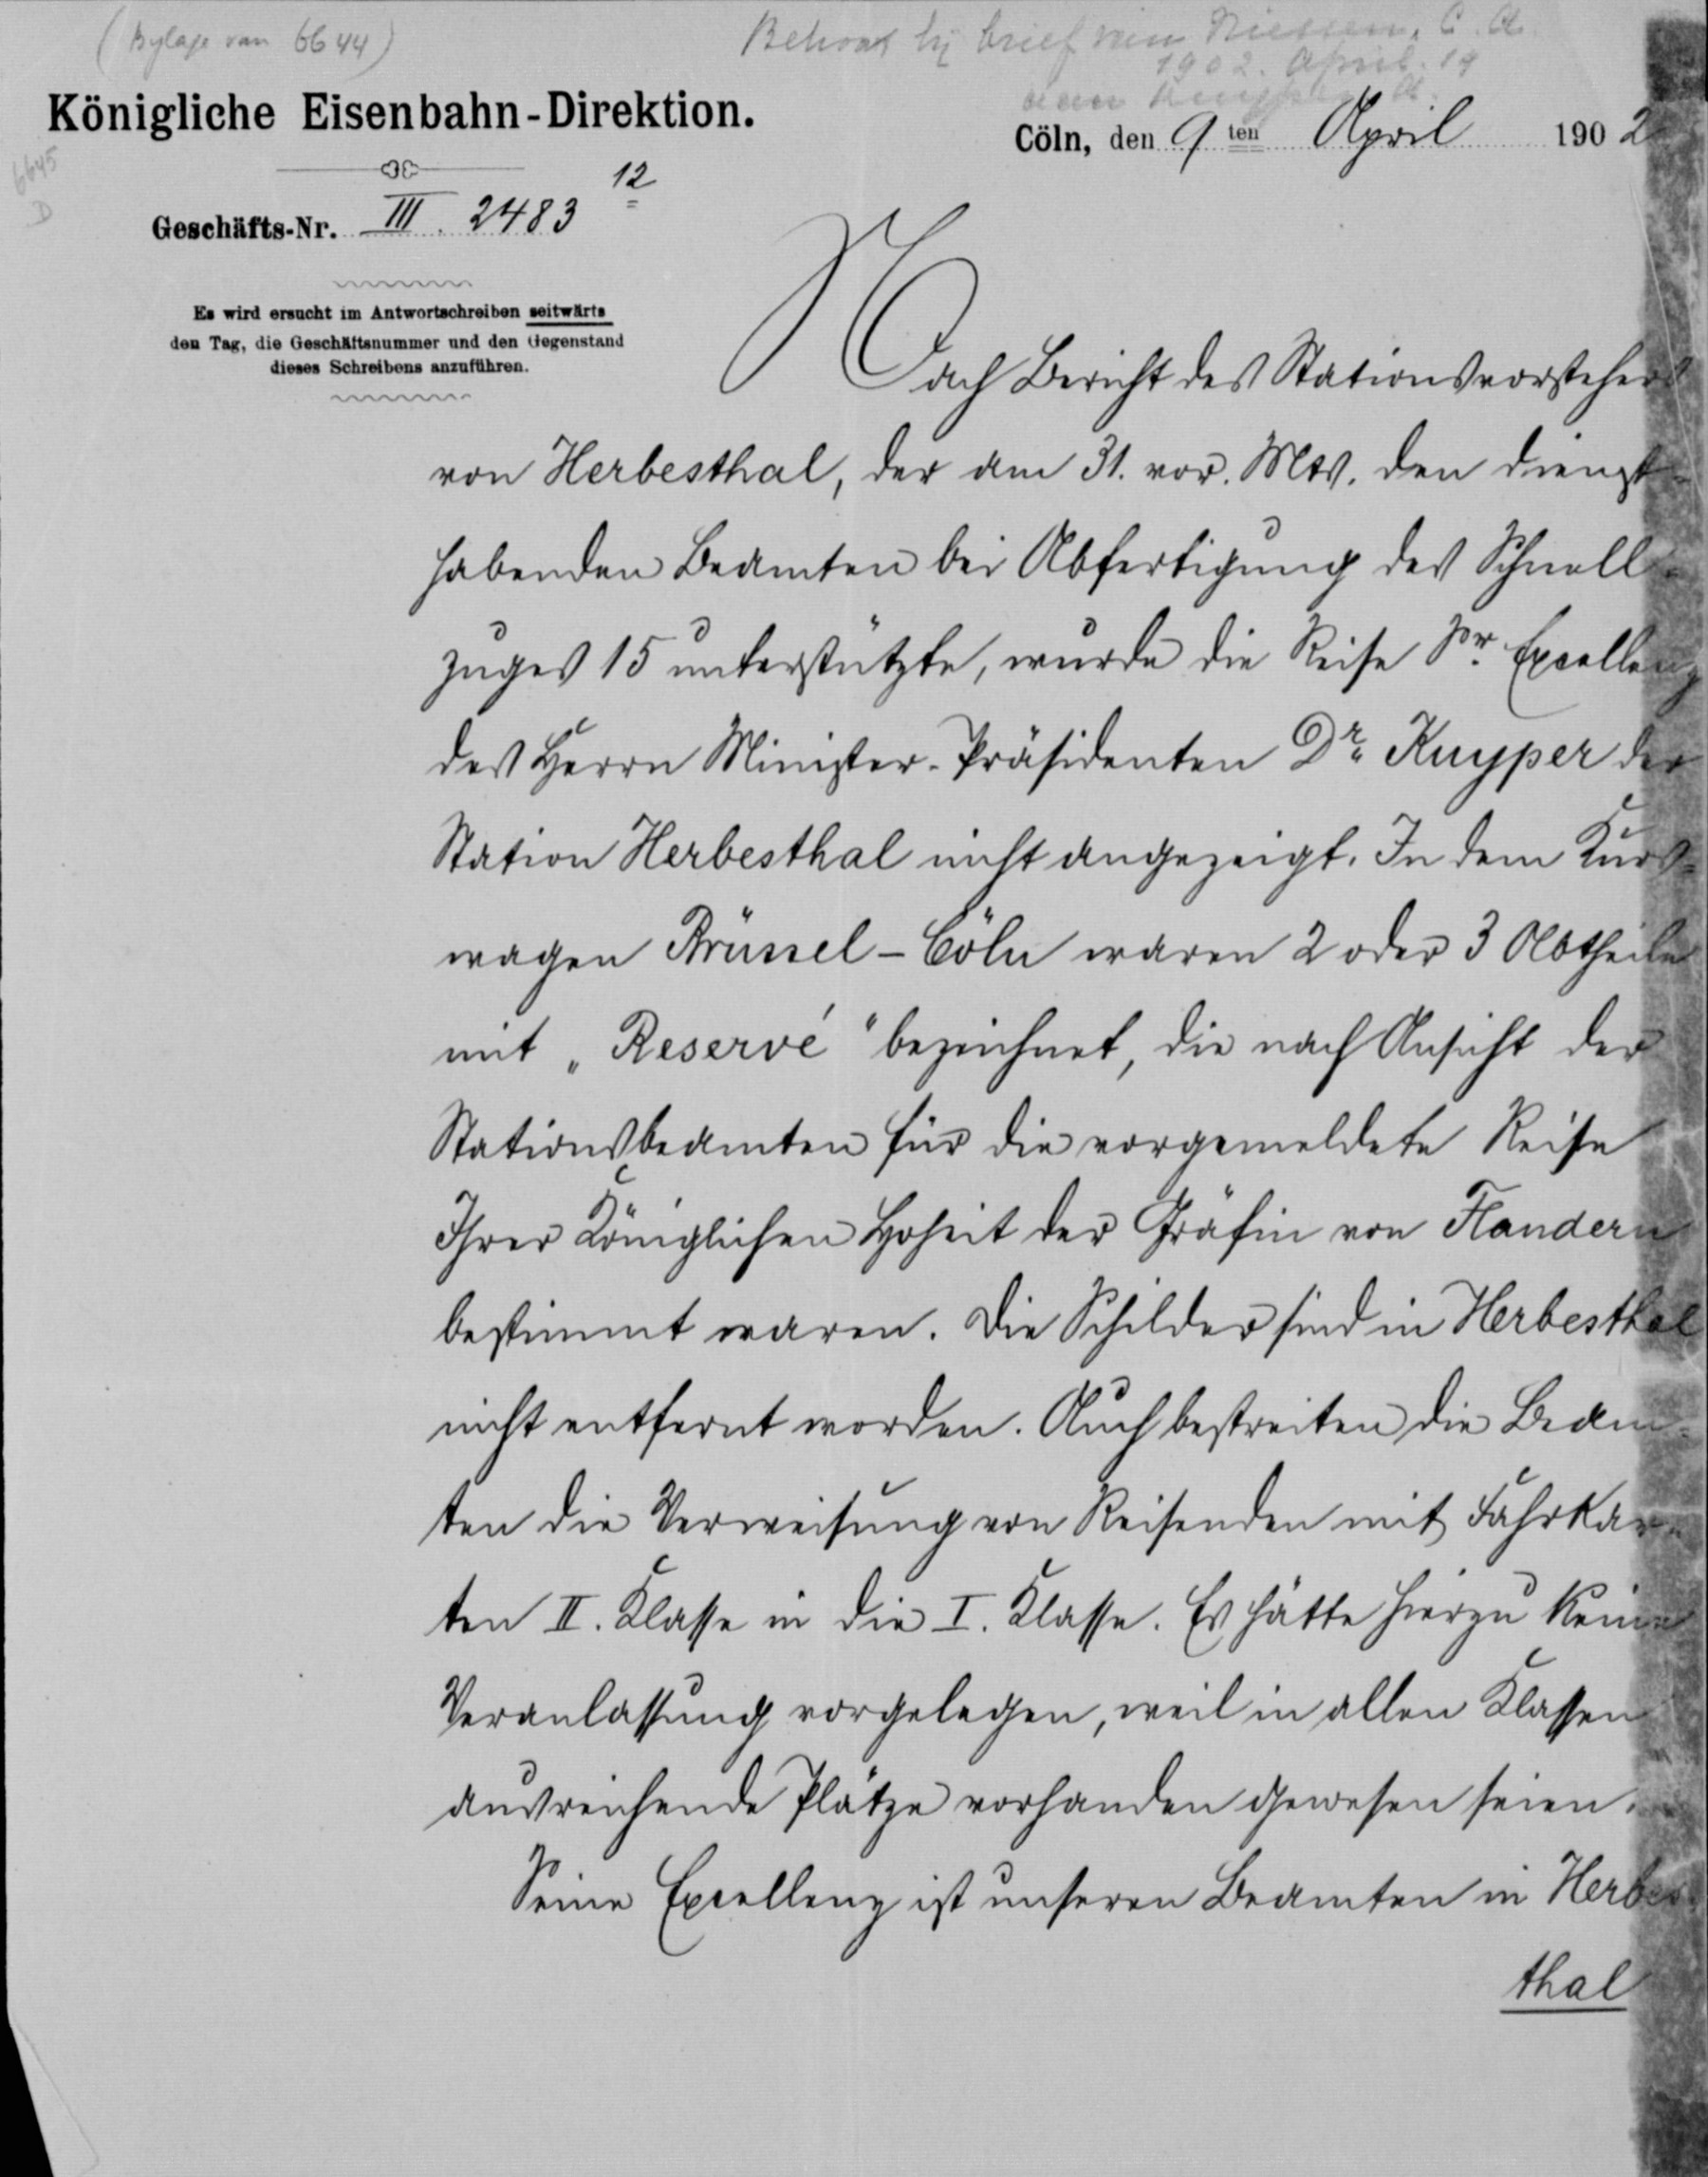 (Bylage van 6644)
Behoort bij brief van Niessen, C. A.
1902. April. 19
aan Kuyper A.
6645
D
Königliche Eisenbahn-Direktion.
Cöln, den 9ten April 1902
Geschäfts-Nr. III. 2483 12
Es wird ersucht im Antwortschreiben seitwärts
den Tag, die Geschäftsnummer und den Gegenstand
dieses Schreibens anzuführen.
Nach Bericht des Stationsvorstehers
von Herbesthal, der am 31. vor. Mts. den dienst-
habenden Beamten bei Abfertigung des Schnell-
zuges 15 unterstützte, wurde die Reise Sr. Excellenz
des Herrn Minister-Präsidenten Dr. Kuyper der
Station Herbesthal nicht angezeigt. In dem Kurs-
wagen Brüssel - Cöln waren 2 oder 3 Abtheile
mit „Reservé" bezeichnet, die nach Ansicht der
Stationsbeamten für die vorgemeldete Reise
Ihrer Königlichen Hoheit der Gräfin von Flandern
bestimmt waren. Die Schilder sind in Herbesthal
nicht entfernt worden. Auch bestreiten die Beam-
ten die Verweisung von Reisenden mit Fahrkar-
ten II. Klasse in die I. Klasse. Es hätte hierzu keine
Veranlassung vorgelegen, weil in allen Klassen
ausreichende Plätze vorhanden gewesen seien.
Seine Excellenz ist unseren Beamten in Herbes-
thal